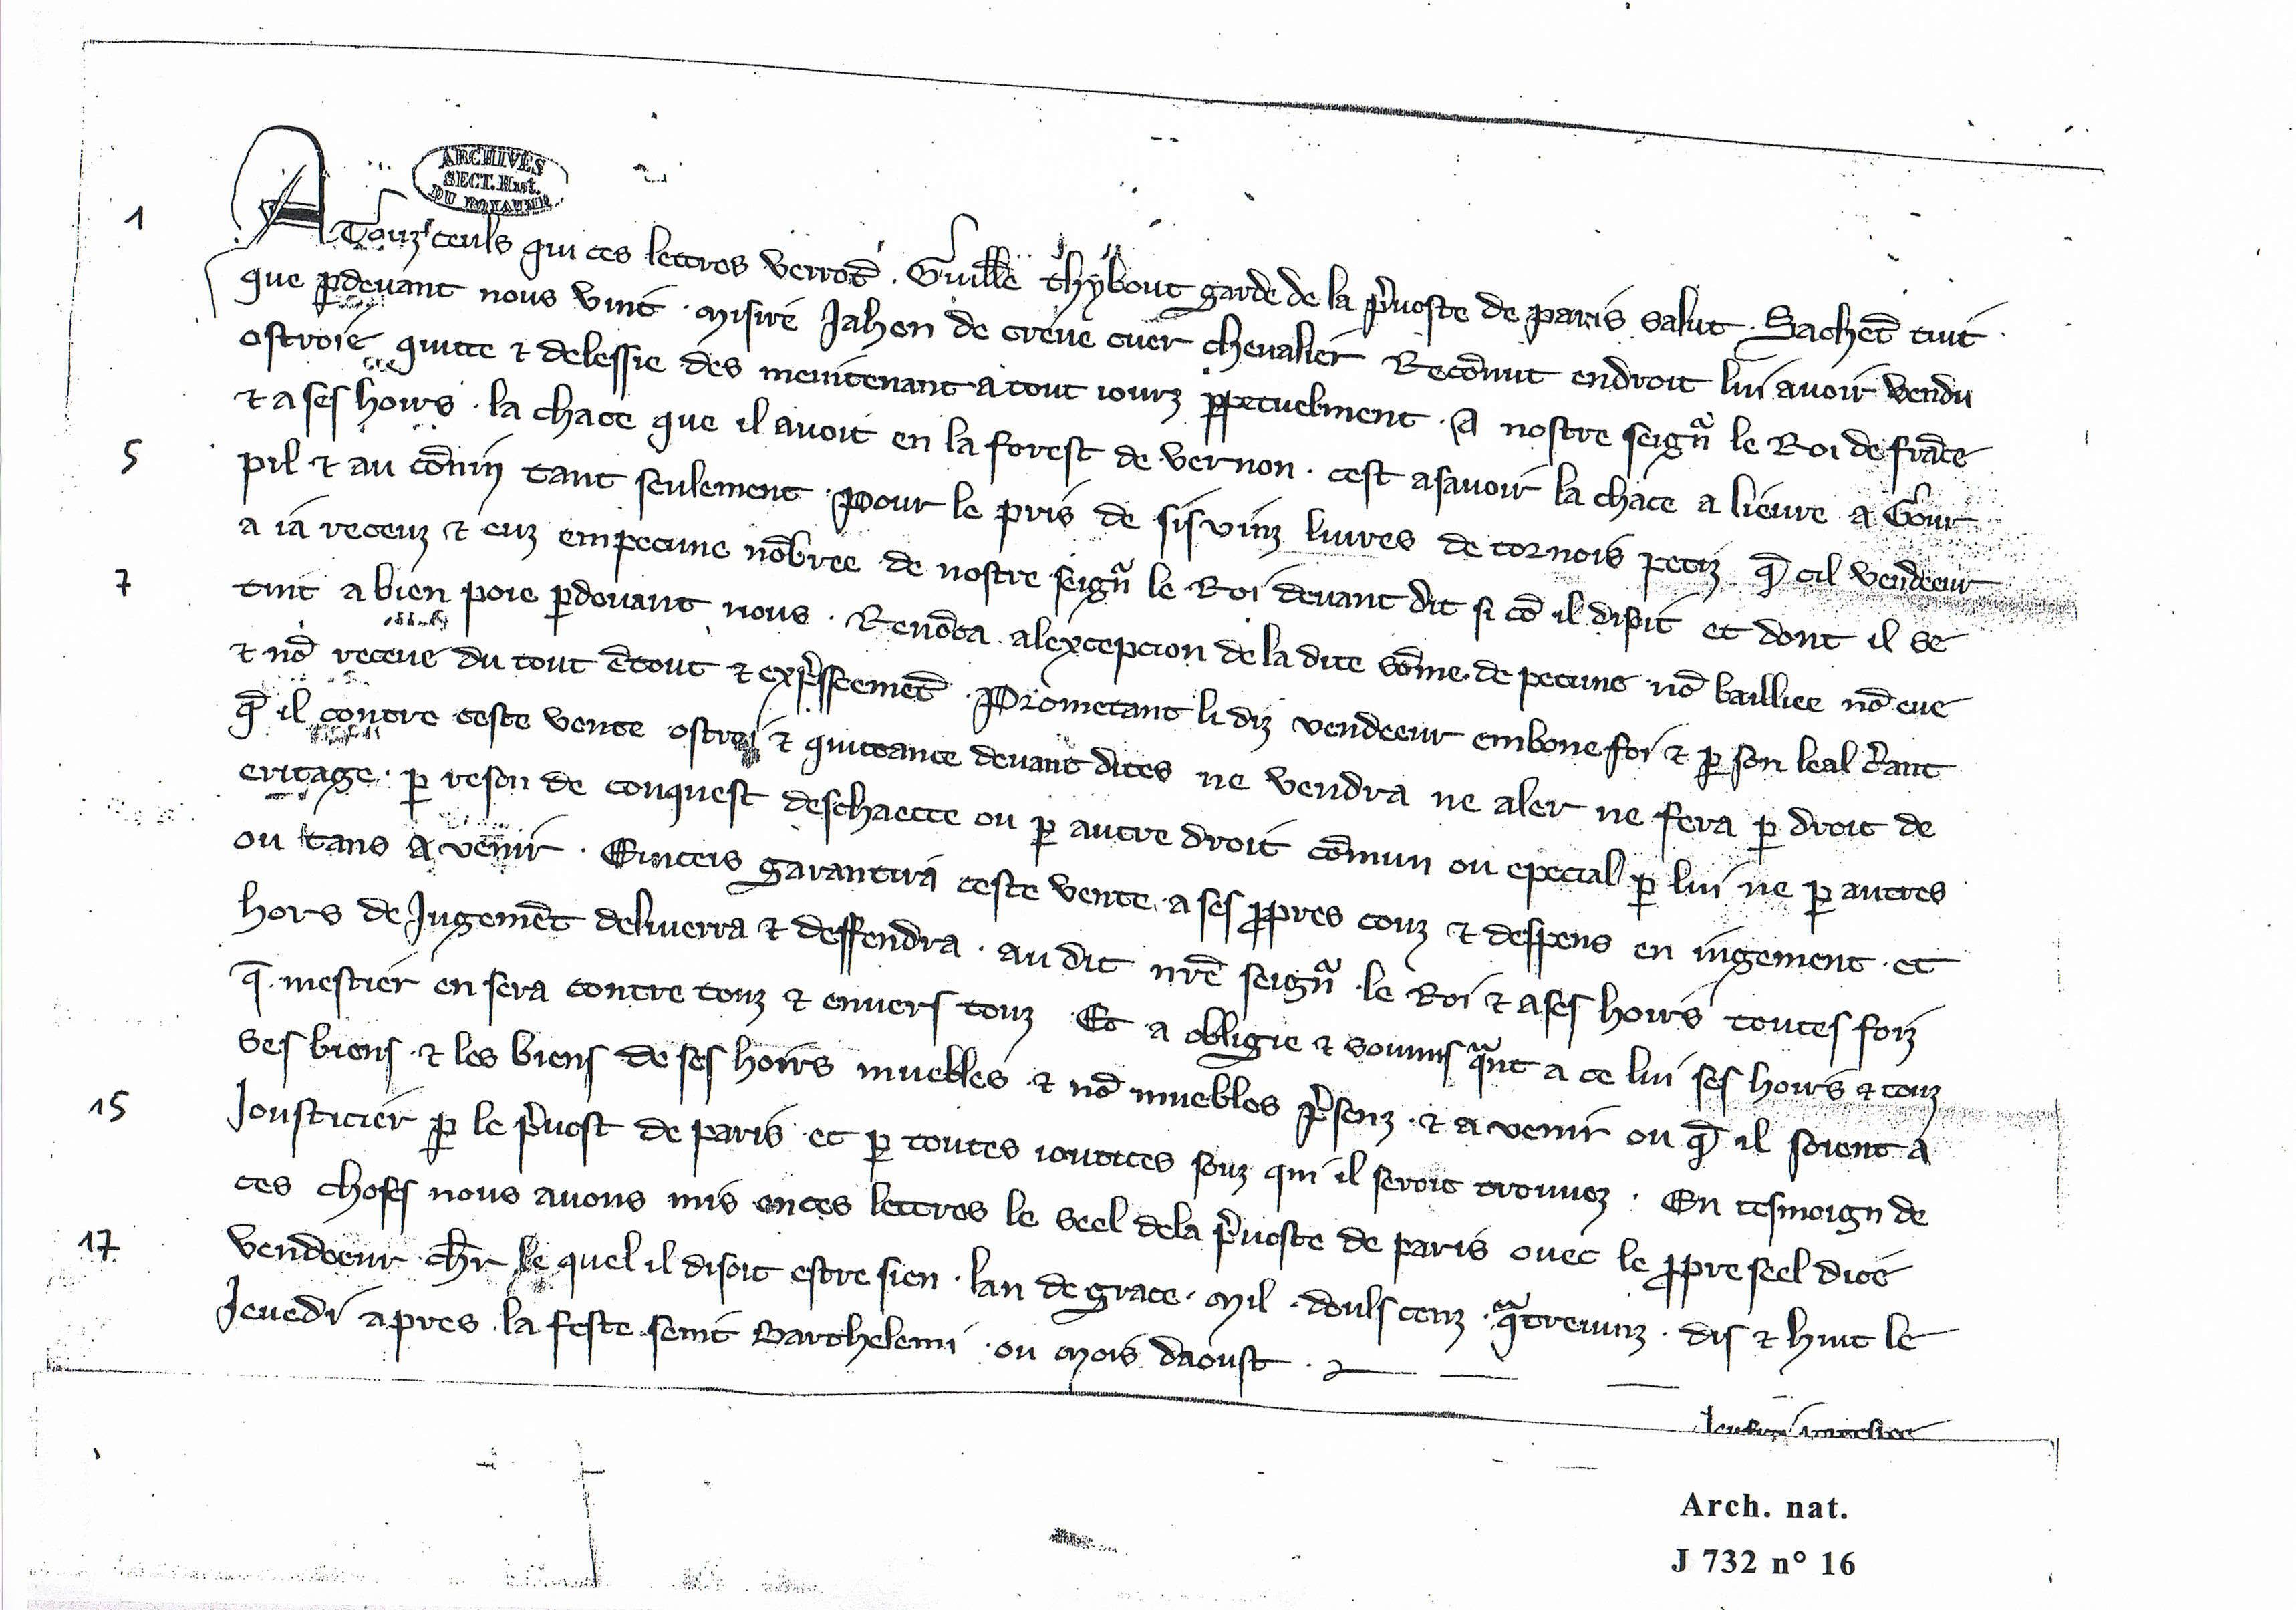 ARCHIVES
SECT. Hist.
DU ROYAUME
1
A Touz ceuls qui ces lettres verrōt . Guille Thybout garde de la p̾uoste de paris salut . Sachēt tuit
que ꝑdeuant nous vint . misire Jahen de creue cuer cheualier Recōnut endroit lui auoir vendu
ostroie quitte ⁊ delessie des meintenant a tout iourz ꝑpetuelment . A nostre seignᵃ le Roi de frāce
⁊ a ses hoirs . la chace que il auoit en la forest de vernon . cest asauoir la chace a lieure a Gour
5
pil ⁊ au cōnin tant seulement . Pour le pris de sis vinz liures de tornois petiz q̄ cil vendeeur
a ia receuz ⁊ euz em pecune nōbree de nostre seignᵃ le Roi deuant dit si cō il disoit et dont il se
7
tint a bien poie ꝑdeuant nous . Renōca . al excepcion de la dite sōme . de pecune nō bailliee nō eue
⁊ nō receue du tout ētout ⁊ exp̾sseemēt . Prometant li diz vendeeur em bone foi ⁊ ꝑ son leal c̾ant
q̄ il contre ceste vente ostroi ⁊ quittance deuant dites ne vendra ne aler ne fera ꝑ droit de
eritage . ꝑ reson de conquest deschaette ou ꝑ autre droit cōmun ou epecial ꝑ lui ne ꝑ autres
ou tans a venir . Einceis garantira ceste vente . a ses ꝓpres couz ⁊ despens en iugement . et
hors de Jugemēt deliuerra ⁊ deffendra . au dit nr̄e seignᵃ . le Roi ⁊ a ses hoirs toutes foiz
q̄ . mestier en sera contre touz ⁊ enuers touz . Et a obligie ⁊ soumis qᵃnt a ce lui ses hoirs ⁊ touz
ses biens . ⁊ les biens de ses hoirs muebles . ⁊ nō muebles p̾senz . ⁊ a venir ou q̄ il soient a
15
Jousticier ꝑ le p̾uost de paris . et ꝑ toutes ioutices souz qui il seroit trouuez . En tesmoign de
ces choses nous auons mis en ces lettres le seel dela p̾uoste de paris ouec le ꝓpre seel dice
17
vendeeur . ch̄r le quel il disoit estre sien . lan de grace . mil . deuls cenz . qᵃtreuinz . dis ⁊ huit le
Jeuedi apres . la feste seint Barthelemi . ou mois daoust .
Arch. nat.
J 732 n° 16